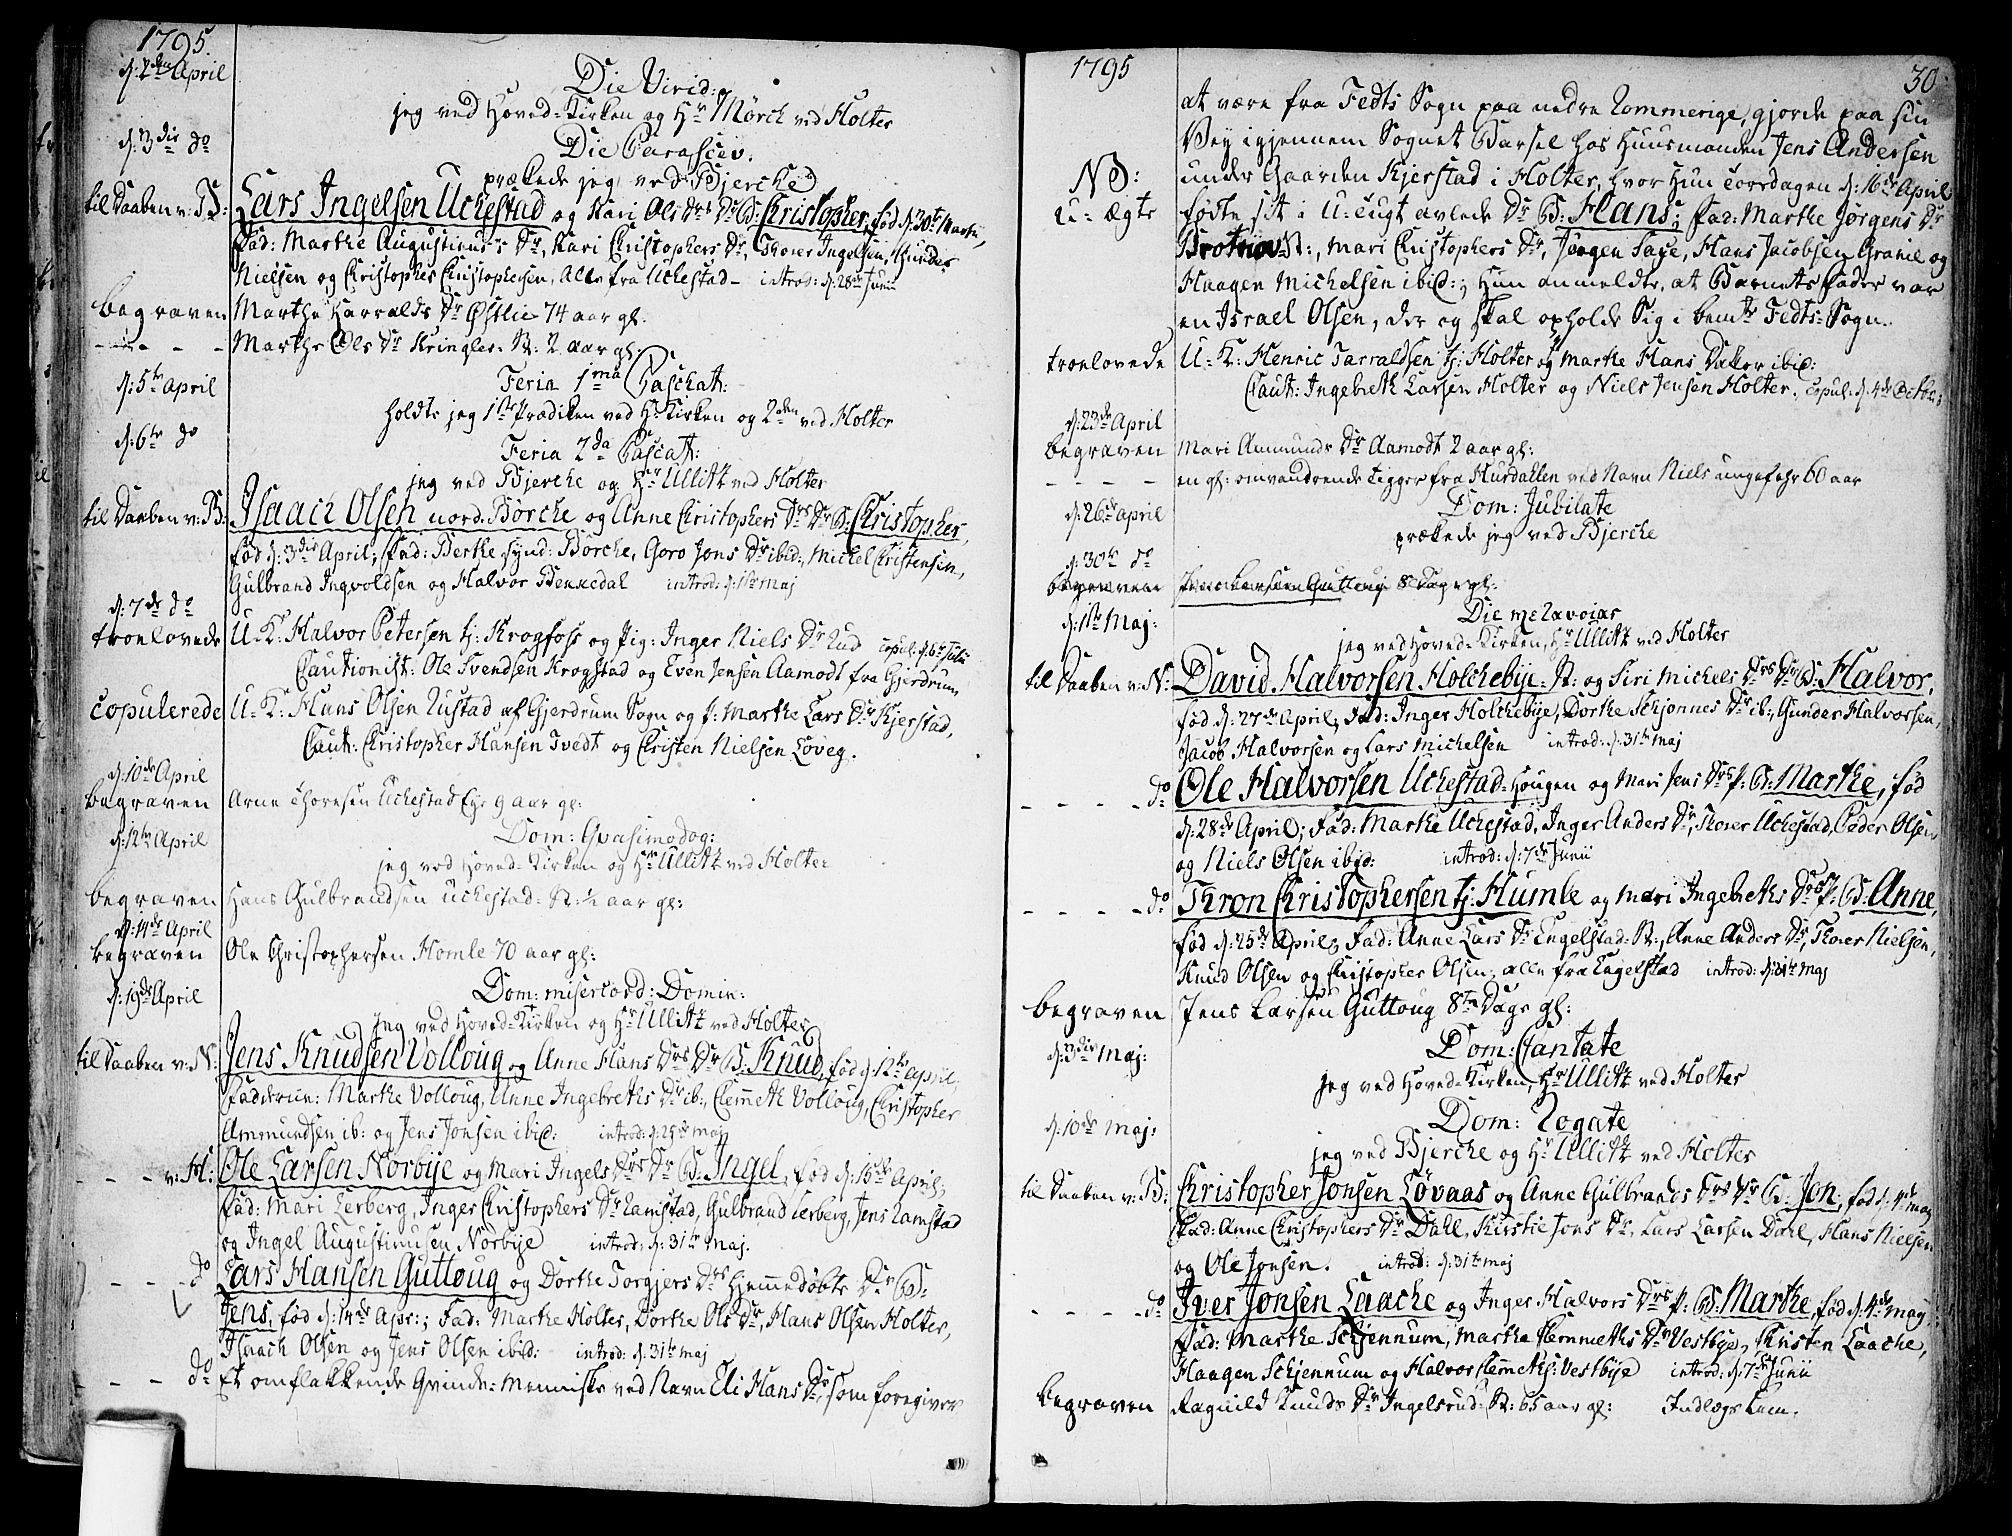 1795.
d: 2den April
Die Virid:
jeg ved Hoved-Kirken og Hr Mörch ved Holter
d: 3die do
Die Parascev.
prækede jeg ved Bjerche
til Daaben v: B: Lars Ingelsen Uchestad og Kari Ols Drs Dr B: Christopher, fød d: 30te Martii,
Fad: Marthe Augustinus Dr, Kari Christophers Dr, Thorer Ingelsen, Gunder
Nielsen og Christopher Christophersen, Alle fra Uchestad - introd: d: 28de Junii
begraven Marthe Harralds Dr Østlie 74 aar gl:
- - - - Marthe Ols Dr Kringler-St: 2 aar gl:
d: 5te April
Feria 1ma Paschat:
holdte jeg 1ste Prædiken ved H: Kirken og 2den ved Holter
d: 6te do
Feria 2da Pascat:
jeg ved Bjerche og Hr Ullitz ved Holter
til Daaben v: B: Isaach Olsen nord. Börche og Anne Christophers Drs Dr B: Christopher,
fød d: 3die April; Fad: Berthe synd: Börche, Goro Jons Dr ibid:, Michel Christensen,
Gulbrand Ingvoldsen og Halvor Bennedal introd: d: 1ste Maj
d: 7de do
troelovede U: K: Halvor Petersen tj: Krogfoss og Pig: Inger Niels Dr Rud copul: d: 6te Julii
Cautionist: Ole Svendsen Krogstad og Even Jensen Aamodt fra Gjerdrum
Copulerede U: K: Hans Olsen Rustad af Gjerdrum Sogn og P: Marthe Lars Dr Kjerstad,
Caut: Christopher Hansen Tvedt og Christen Nielsen Löveg.
d: 10de April
begraven Arne Thoresen Uchestad Eje 9 aar gl:
d: 12te April
Dom: Qvasimodog:
jeg ved Hoved-Kirken og Hr Ullitz ved Holter
begraven Hans Gulbrandsen Uchestad-St: ½ aar gl:
d: 14de April
begraven Ole Christophersen Homle 70 aar gl:
d: 19de April
Dom: misericord: Domin:
Jeg ved Hoved-Kirken og Hr Ullitz ved Holter
til Daaben v: N: Jens Knudsen Volloug og Anne Hans Drs Dr B: Knud, fød d: 12te April,
Fadderne: Marthe Volloug, Anne Ingebreths Dr ib:, Clemeth Volloug, Christopher
Ammundsen ib: og Jens Jonsen ibid: introd: d: 25de Maj
- - - v: H: Ole Larsen Norbye og Mari Ingels Drs Dr B: Ingel, fød d: 15de April;
Fad: Mari Lerberg, Inger Christophers Dr Ramstad, Gulbrand Lerberg, Jens Ramstad
og Ingel Augustinusen Norbye introd: d: 31te Maj.
- - - do Lars Hansen Guttoug og Dorthe Torgjers Drs hjemmedøbte Dr B:
Jens, fød d: 14de Apr:; Fad: Marthe Holter, Dorthe Ols Dr, Hans Olsen Holter,
Isaach Olsen og Jens Olsen ibid: introd: d: 31te Maj
- - - do Et omflakkende Qvinde-Menniske ved Navn Eli Hans Dr, som foregiver
1795
30
at være fra Fedts Sogn paa nedre Rommerige, gjorde paa sin
Vey igjennem Sognet Barsel hos Huusmanden Jens Andersen
NB: under Gaarden Kjerstad i Holter, hvor Hun Torsdagen d: 16de April
U-ægte fødte sit i U-tugt avlede Dr B: Hans; Fad: Marthe Jörgens Dr
St:, Mari Christophers Dr, Jörgen Saxe, Hans Jacobsen Gravil og
Haagen Michelsen ibid:; Hun anmeldte, at Barnets Fader var
en Israel Olsen, der og skal opholde Sig i bemte Fedts-Sogn.
troelovede U: K: Henric Tarraldsen tj: Holter og Marthe Hans Datter ibid:
Caut: Ingebreth Larsen Holter og Niels Jensen Holter. copul: d: 4de Octbr:
d: 23de April
begraven Mari Ammunds Dr Aamodt 2 aar gl:
- - - - en gl: omvandrende Tigger fra Hurdahlen ved Navn Niels ungefehr 60 aar
d: 26de April
Dom: Jubilate
prækede jeg ved Bjerche
d: 30te do
begraven Jens Larsen Guttoug 8 Dage gl:
d: 1ste Maj:
Die
jeg ved Hoved-Kirken, Hr Ullitz ved Holter
til Daaben v: N: David Halvorsen Holchebye-St: og Siri Michels Drs Dr B: Halvor,
fød d: 27de April; Fad: Inger Holchebye, Dorthe Schjonnes Dr ib:, Gunder Halvorsen,
Jacob Halvorsen og Lars Michelsen introd: d: 31te Maj
- - - - do Ole Halvorsen Uchestad-Hougen og Mari Jens Drs P: B: Marthe, fød
d: 28de April; Fad: Marthe Uchestad, Inger Anders Dr, Thorer Uchestad, Peder Olsen
og Niels Olsen ibid: introd: d: 7de Junii
- - - - do Thron Christophersen tj: Humle og Mari Ingebreths Drs P: B: Anne,
fød d: 25de April; Fad: Anne Lars Dr Engelstad-St:, Anne Anders Dr, Thorer Nielsen,
Knud Olsen og Christopher Olsen, alle fra Engelstad introd: d: 31te Maj
begraven Jens Larsen Guttoug 8te Dage gl:
d: 3die Maj:
Dom: Cantate
jeg ved Hoved-Kirken, Hr Ullitz ved Holter
d: 10de Maj:
Dom: Rogate
jeg ved Bjerche og Hr Ullitz ved Holter
til Daaben v: B: Christopher Jonsen Lövaas og Anne Gulbrands Drs Dr B: Jon, fød d: 4de Maj
Fad: Anne Christophers Dr Dahl, Kirstie Jons Dr, Lars Larsen Dahl, Hans Nielsen
og Ole Jonsen. introd: d: 31te Maj
- - - - do Iver Jonsen Laache og Inger Halvors Drs P: B: Marthe, fød d: 4de Maj
Fad: Marthe Schjennum, Marthe Clemmeths Dr Vestbye, Kirsten Laache,
Haagen Schjennum og Halvor Clemeths: Vestbye introd: d: 7de Junii
begraven Ragnild Knuds Dr Ingelsrud-St: 65 aar gl: Indlægs Lem.